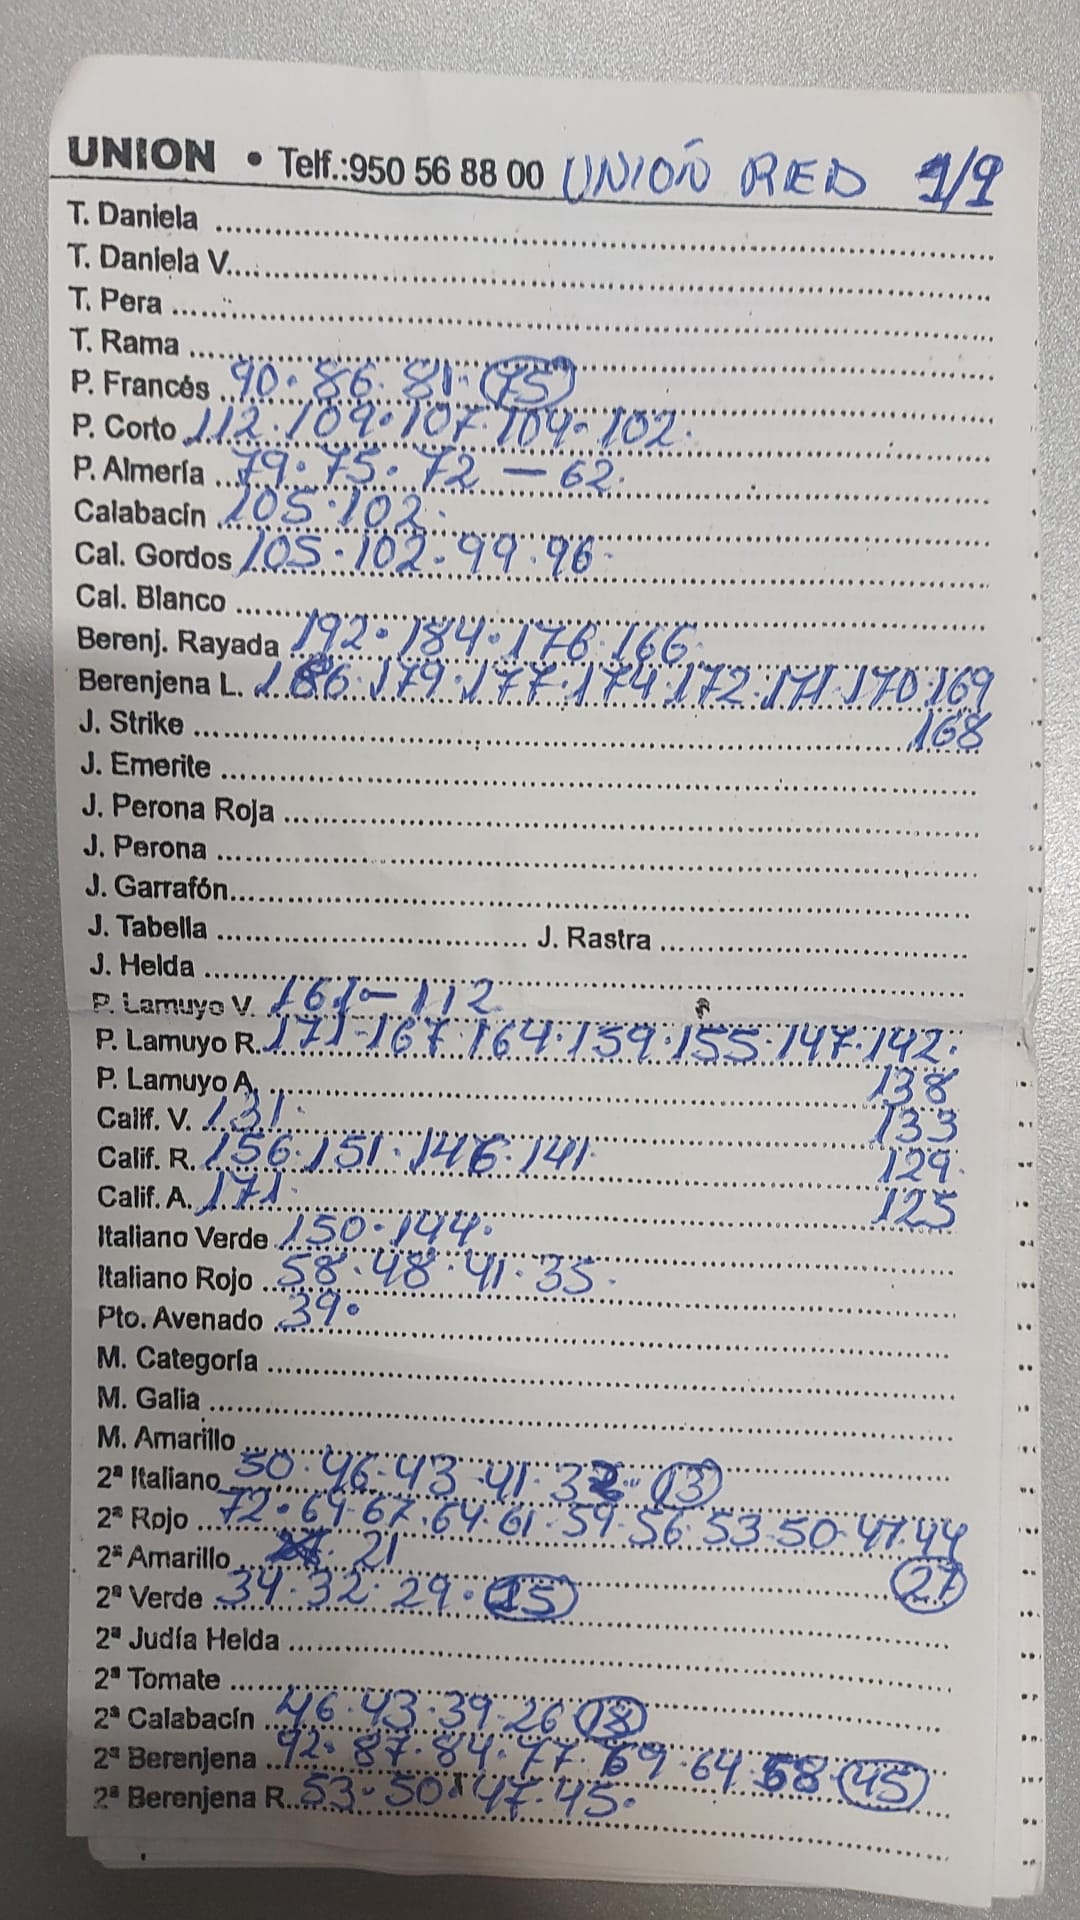 UNION • Telf.:950 56 88 00 UNIÓN RED 1/9
T. Daniela
T. Daniela V.
T. Pera
T. Rama
P. Francés 90. 86. 81. 75
P. Corto 112. 109. 107. 104. 102.
P. Almería 79. 75. 72 — 62.
Calabacín 105. 102.
Cal. Gordos 105. 102. 99. 96.
Cal. Blanco
Berenj. Rayada 192. 184. 176. 166.
Berenjena L. 186. 179. 177. 174. 172. 171. 170. 169
J. Strike 168
J. Emerite
J. Perona Roja
J. Perona
J. Garrafón
J. Tabella J. Rastra
J. Helda
P. Lamuyo V. 161 — 112
P. Lamuyo R. 171. 167. 164. 159. 155. 147. 142.
P. Lamuyo A. 138
Calif. V. 131. 133
Calif. R. 156. 151. 146. 141. 129.
Calif. A. 171. 125
Italiano Verde 150. 144.
Italiano Rojo 58. 48. 41. 35.
Pto. Avenado 39.
M. Categoría
M. Galia
M. Amarillo
2ª Italiano 50. 46. 43. 41. 32. 13
2ª Rojo 72. 69. 67. 64. 61. 59. 56. 53. 50. 47. 44
2ª Amarillo 21 27
2ª Verde 34. 32. 29. 15
2ª Judía Helda
2ª Tomate
2ª Calabacín 46. 43. 39. 26 18
2ª Berenjena 92. 87. 84. 77. 69. 64. 58. 45
2ª Berenjena R. 53. 50. 47. 45.